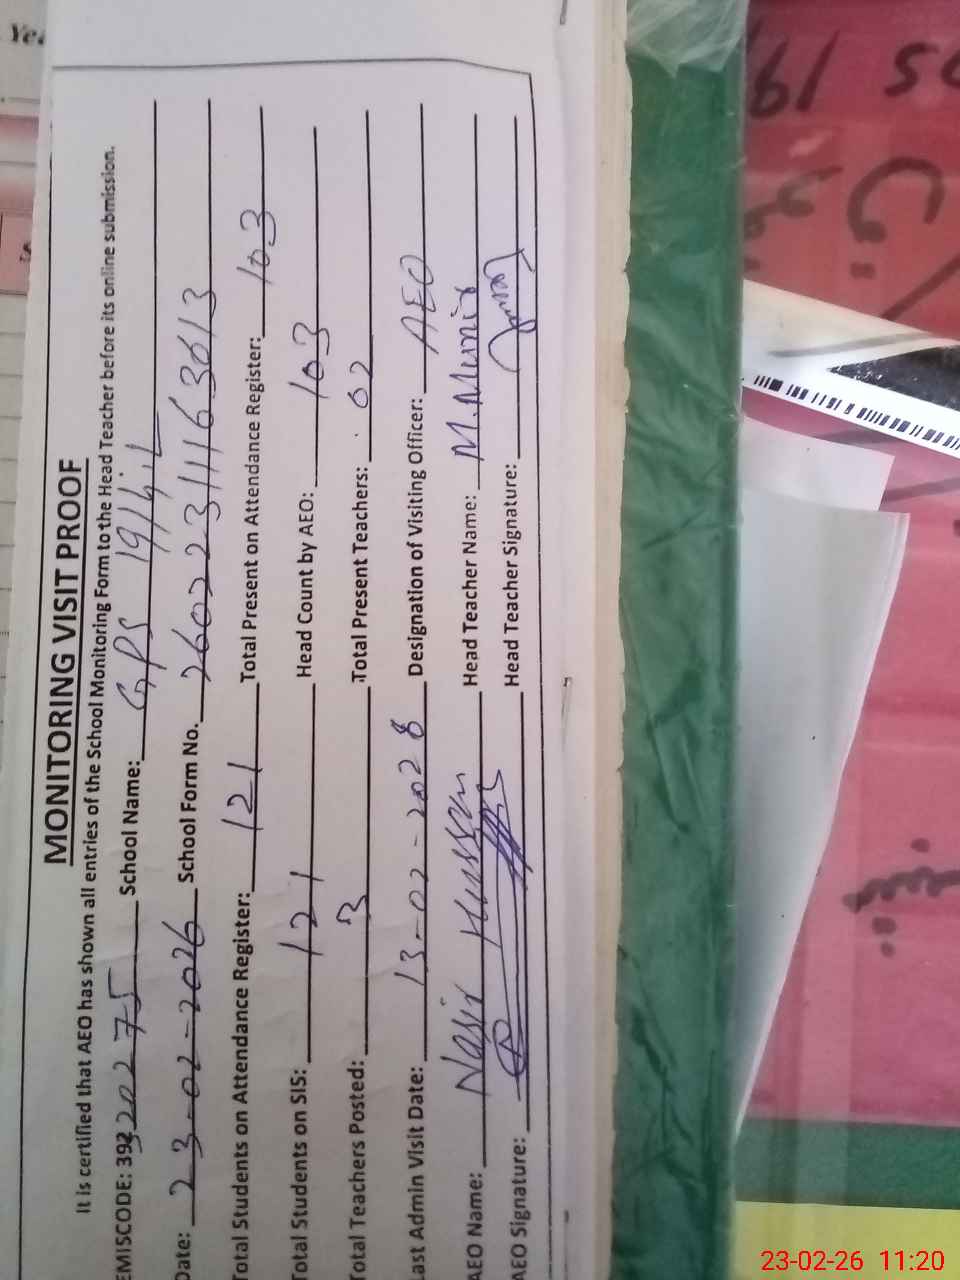 MONITORING VISIT PROOF
It is certified that AEO has shown all entries of the School Monitoring Form to the Head Teacher before its online submission.
EMISCODE: 39220275 School Name: GPS 19/1/iL
Date: 23-02-2026 School Form No. 26022311163613
Total Students on Attendance Register: 121 Total Present on Attendance Register: 103
Total Students on SIS: 121 Head Count by AEO: 103
Total Teachers Posted: 3 Total Present Teachers: 02
Last Admin Visit Date: 13-02-2028 Designation of Visiting Officer: AEO
AEO Name: Nasir Hussain Head Teacher Name: M. Munir
AEO Signature: Head Teacher Signature:
23-02-26 11:20